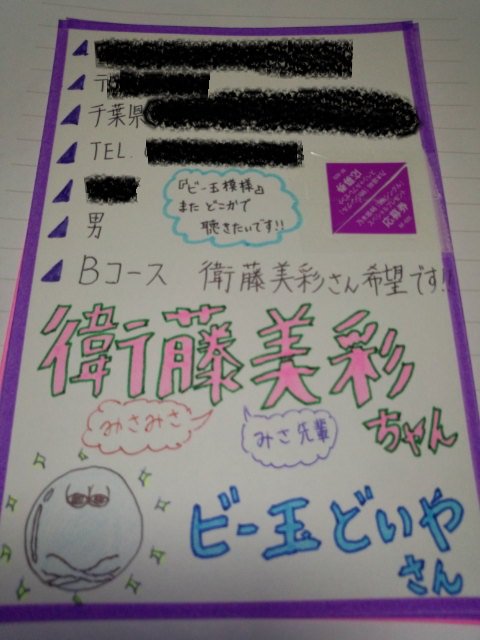 千葉県
TEL.
『ビー玉模様』
また どこかで
聴きたいです!!
応募券
男
Bコース 衛藤美彩さん希望です!!
衛藤美彩
ちゃん
みさみさ
みさ先輩
ビー玉どいや
さん